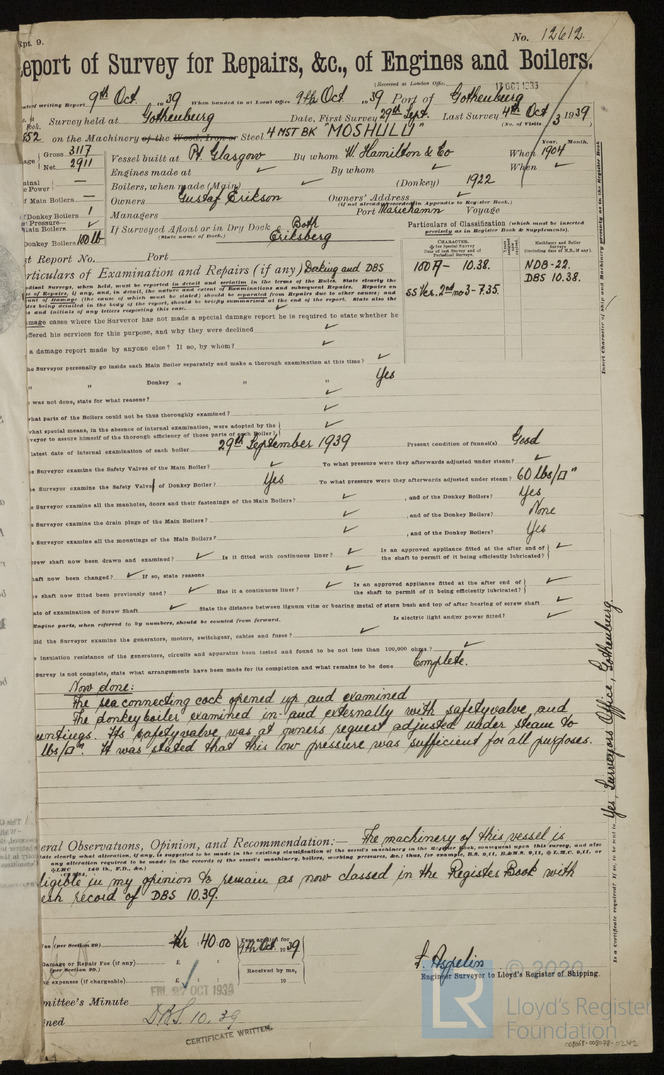 Rpt. 9.
No. 12612.
eport of Survey for Repairs, &c., of Engines and Boilers.
(Received at London Office 17 OCT 1939
of writing Report 9th Oct 1939 When handed in at Local Office 9th Oct 1939 Port of Gothenburg
Survey held at Gothenburg Date, First Survey 29th Sept. Last Survey 4th Oct 1939
(No. of Visits 3
652 on the Machinery of the Wood, Iron or Steel 4 MST BK "MOSHULU"
Gross 3117
Net 2911
Vessel built at Pt Glasgow By whom W. Hamilton & Co When 1904
Year. Month.
Engines made at By whom When
Boilers, when made (Main) (Donkey) 1922
Owners Gustaf Erikson Owners' Address
(if not already recorded in Appendix to Register Book.)
Managers Port Mariehamn Voyage
of Main Boilers —
of Donkey Boilers 1
Main Boilers
Donkey Boilers 100 lb
If Surveyed Afloat or in Dry Dock Both
(State name of Dock.) Eriksberg
Particulars of Classification (which must be inserted
precisely as in Register Book & Supplements).
st Report No. Port
articulars of Examination and Repairs (if any) Docking and DBS
100A- 10.38.
SS Ver. 2nd no3-7.35.
NDB-22.
DBS 10.38.
amage cases where the Surveyor has not made a special damage report he is required to state whether he
offered his services for this purpose, and why they were declined
a damage report made by anyone else? If so, by whom?
he Surveyor personally go inside each Main Boiler separately and make a thorough examination at this time?
" " Donkey " " " Yes
was not done, state for what reasons?
what parts of the Boilers could not be thoroughly examined?
what special means, in the absence of internal examination, were adopted by the
veyor to assure himself of the thorough efficiency of those parts of each Boiler?
latest date of internal examination of each boiler 29th September 1939 Present condition of funnel(s) Good
e Surveyor examine the Safety Valves of the Main Boiler? To what pressure were they afterwards adjusted under steam?
e Surveyor examine the Safety Valve of Donkey Boiler? Yes To what pressure were they afterwards adjusted under steam? 60 lbs/□"
e Surveyor examine all the manholes, doors and their fastenings of the Main Boilers? , and of the Donkey Boilers? Yes
e Surveyor examine the drain plugs of the Main Boilers? , and of the Donkey Boilers? None
e Surveyor examine all the mountings of the Main Boilers? , and of the Donkey Boilers? Yes
crew shaft now been drawn and examined? Is it fitted with continuous liner? Is an approved appliance fitted at the after end of
the shaft to permit of it being efficiently lubricated?
haft now been changed? If so, state reasons
e shaft now fitted been previously used? Has it a continuous liner? Is an approved appliance fitted at the after end of
the shaft to permit of it being efficiently lubricated?
ate of examination of Screw Shaft State the distance between lignum vitæ or bearing metal of stern bush and top of after bearing of screw shaft
Engine parts, when referred to by numbers, should be counted from forward. Is electric light and/or power fitted?
did the Surveyor examine the generators, motors, switchgear, cables and fuses?
e insulation resistance of the generators, circuits and apparatus been tested and found to be not less than 100,000 ohms?
Survey is not complete, state what arrangements have been made for its completion and what remains to be done Complete.
Now done:
The sea connecting cock opened up and examined
The donkeyboiler examined in- and externally with safetyvalve and
untings. Its safetyvalve was at owners request adjusted under steam to
lbs/□". It was stated that this low pressure was sufficient for all purposes.
eral Observations, Opinion, and Recommendation:— The machinery of this vessel is
ligible in my opinion to remain as now classed in the Register Book with
esh record of DBS 10.39.
Fee (per Section 29) Kr 40.00 Fees applied for 9th Oct 1939
Damage or Repair Fee (if any) £
(per Section 29.)
Received by me,
ng expenses (if chargeable) £ 19
Aspelin
Engineer Surveyor to Lloyd's Register of Shipping.
mmittee's Minute FRI. 27 OCT 1939
ned DBS 10.39
CERTIFICATE WRITTEN.
Is a Certificate required? If so, to be sent to Yes, Surveyors Office, Gothenburg.
© 2020
LR
Lloyd's Register
Foundation
008068-008078-0242